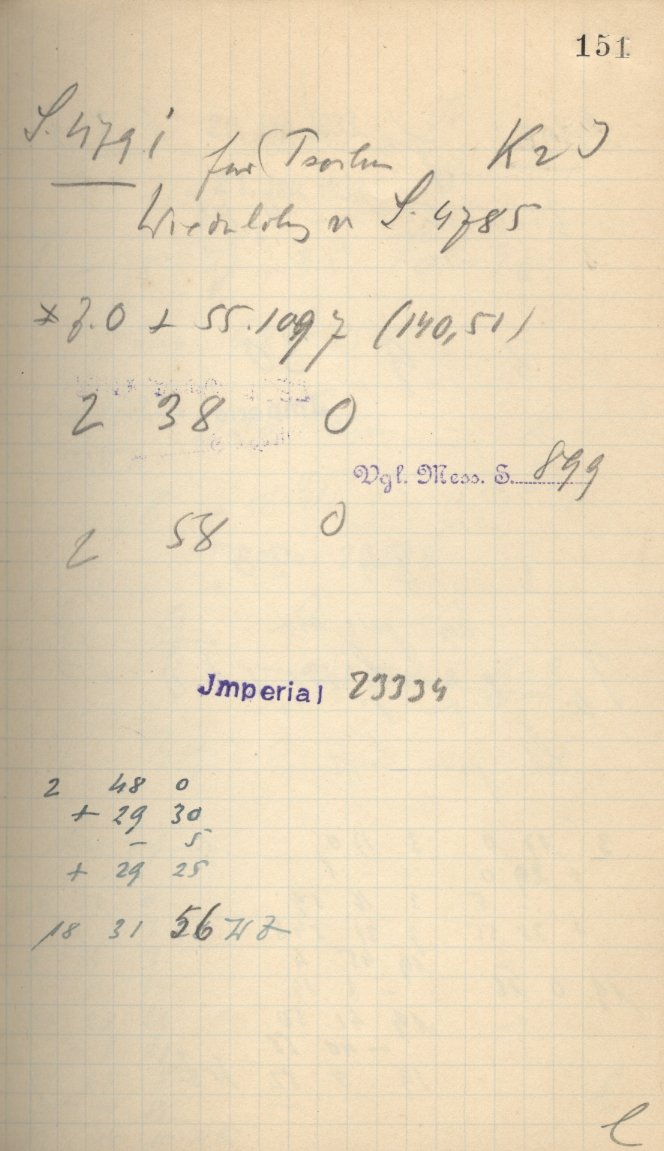 151
S. 4791 für K2
S. 4785
* Z. 0 + 55.1097 (140,51)
2 38 0
Vgl. Mess. S. 899
2 58 0
Imperial 23334
2 48 0
+ 29 30
- 5
+ 29 25
18 31 56